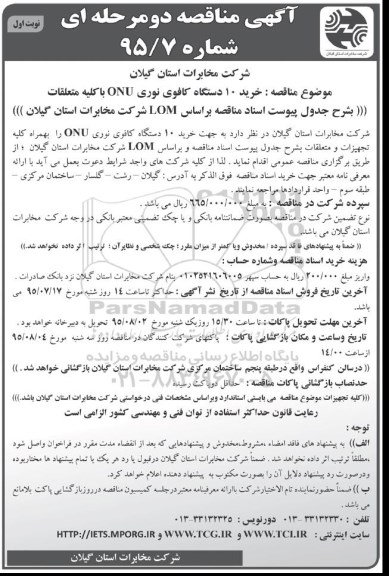 آگهی مناقصه دو مرحله ای
نوبت اول
شماره ۹۵/۷
شرکت مخابرات استان گیلان
شرکت مخابرات استان گیلان
موضوع مناقصه : خرید ۱۰ دستگاه کافوی نوری ONU باکلیه متعلقات
((( بشرح جدول پیوست اسناد مناقصه براساس LOM شرکت مخابرات استان گیلان )))
شرکت مخابرات استان گیلان در نظر دارد به جهت خرید ۱۰ دستگاه کافوی نوری ONU را بهمراه کلیه
تجهیزات و متعلقات بشرح جدول پیوست اسناد مناقصه و براساس LOM شرکت مخابرات استان گیلان ؛ از
طریق برگزاری مناقصه عمومی اقدام نماید . لذا از کلیه شرکت های واجد شرایط دعوت بعمل می آید با ارائه
معرفی نامه معتبر جهت خرید اسناد مناقصه فوق الذکر به آدرس : گیلان – رشت – گلسار – ساختمان مرکزی –
طبقه سوم – واحد قراردادها مراجعه نمایند.
سپرده شرکت در مناقصه : به مبلغ ۶۶۵/۰۰۰/۰۰۰ ریال می باشد .
نوع تضمین شرکت در مناقصه بصورت ضمانتنامه بانکی و یا چک تضمینی معتبر بانکی در وجه شرکت مخابرات
استان گیلان می باشد.
(( ضمناً به پیشنهادهای فاقد سپرده / مخدوش ویا کمتر از میزان مقرر / چک شخصی و نظایر آن ؛ ترتیب اثر داده نخواهد شد.))
هزینه خرید اسناد مناقصه وشماره حساب :
واریز مبلغ ۲۰۰/۰۰۰ ریال به حساب سپهر ۰۱۰۳۵۲۱۶۰۶۰۰۵ بنام شرکت مخابرات استان گیلان نزد بانک صادرات .
آخرین تاریخ فروش اسناد مناقصه از تاریخ نشر آگهی : حداکثر تاساعت ۱۴ روز شنبه مورخ ۹۵/۰۷/۱۷ می
باشد.
آخرین مهلت تحویل پاکات : تا ساعت ۱۵/۳۰ روز یک شنبه مورخ ۹۵/۰۸/۰۲ تحویل به دبیرخانه خواهد بود .
تاریخ وساعت و مکان بازگشایی پاکات : پاکتهای شرکت کنندگان در مناقصه روز سه شنبه مورخ ۹۵/۰۸/۰۴
از ساعت ۱۴/۰۰
(( درسالن کنفراس واقع درطبقه پنجم ساختمان مرکزی شرکت مخابرات استان گیلان بازگشائی خواهد شد. ))
حدنصاب بازگشائی پاکات مناقصه : حداقل دوپاکت رسیده
(((کلیه تجهیزات موضوع مناقصه می بایستی استاندارد وبراساس مشخصات فنی درخواستی شرکت مخابرات استان گیلان باشد.)))
رعایت قانون حداکثر استفاده از توان فنی و مهندسی کشور الزامی است
توجه :
الف)) به پیشنهاد های فاقد امضاء ،مشروط،مخدوش و پیشنهادهایی که بعد از انقضاء مدت مقرر در فراخوان واصل شود
،مطلقاً ترتیب اثر داده نخواهد شد . ضمناً شرکت مخابرات استان گیلان درقبول یا رد هر یک یا تمام پیشنهاد ها مختاربوده
ودرصورت رد پیشنهاد دلایل آن را بصورت مکتوب به پیشنهاد دهنده اعلام خواهد کرد.
ب )) ضمناً حضورنماینده تام الاختیارشرکت باارائه معرفینامه معتبر درجلسه کمیسیون مناقصه درروزبازگشایی پاکت بلامانع
می باشد .
تلفن : ۳۳۱۳۲۳۳۰-۰۱۳ دورنویس : ۳۳۱۳۲۳۲۵-۰۱۳
سایت اینترنتی : WWW.TCI.IR و WWW.TCG.IR و HTTP://IETS.MPORG.IR
شرکت مخابرات استان گیلان
ParsNamadData
پایگاه اطلاع رسانی مناقصه و مزایده
۰۲۱-۸۸۳۴۹۶۷۰-۵